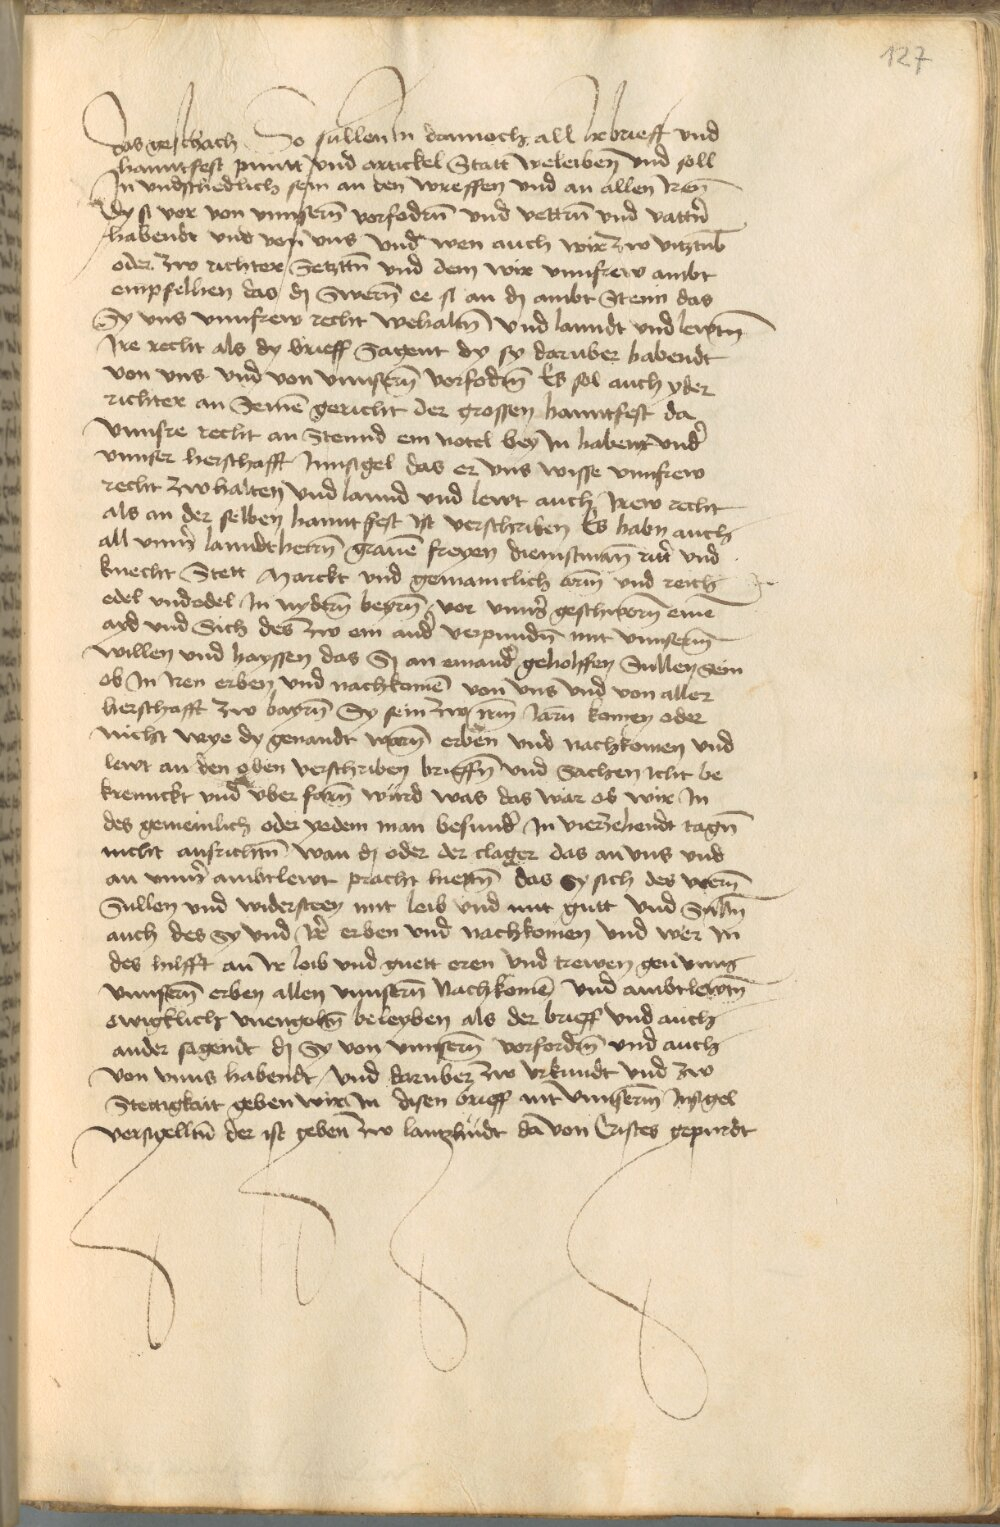 127
das geschach So sullen In dannoch all Ir brieff vnd
hanntfest punt vnd artickel Statt weleiben vnd soll
In vndschiedlich sein an den wreffen vnd an allen Iren
dy si vor von vnnsern̄ vorfodrn̄ vnd vettrn̄ vnd vattrn̄
habendt vnd von vns vnd wen auch wir zw vitztūb
oder zw richter Setzttn̄ vnd dem wir vnnsrew ambt
empfelhen das dj Swern̄ ee si an dj ambt Stenn das
Sy vns vnnsrew recht wehaltn̄ vnd lanndt vnd lewtn̄
Ire recht als dy brieff Sagent dy sy daruber habendt
von vns vnd von vnnsern̄ vorfodrn̄ Es sol auch yder
richter an Seinē gericht der grossen hanntfest da
vnnsre recht an Stennd ein notel bey In haben vnd̄
vnnser herschafft Innsigel das er vns wisse vnnsrew
recht zw halten vnd lannd vnd lewt auch Irew recht
als an der selben hanntfest ist verschriben Es habn auch
all vnnsr̄ lanndthern̄ grauē freyen dienstman̄ rittr̄ vnd
knecht Stett Marckt vnd gemaincklich arm̄ vnd reich
edel vnedel In nydern̄ beyrn̄ vor vnns geschworn̄ einē
ayd vnd Sich des zw ein andr̄ verpundn̄ mit vnnserm̄
willen vnd hayssen das Sj an einandr̄ geholffen Sullen sein
ob In Iren erben vnd nachkomē von vns vnd von aller
herschafft zw bayrn̄ Sy sein zw Irn̄ Jarn komen oder
nicht wye dy genandt warn̄ erben vnd nachkomen vnd
lewt an den oben verschriben brieffn̄ vnd Sachen Icht be
krenckt vnd vber farn̄ wurd was das war ob wir In
des gemeinlich oder yedem man besundr̄ In vierzehendt tagn̄
nicht ausrichtn̄ wan dj oder der clager das an vns vnd
an vnnsr̄ ambtlewt pracht hietn̄ das Sy sich des wern̄
Sullen vnd widersteen mit leib vnd mit gutt vnd Sulln̄
auch des Sy vnd Ir̄ erben vnd nachkomen vnd wer In
des hilfft an Ir leib vnd guett eren vnd trewen gen vnns
vnnsern̄ erben allen vnnsern̄ Nachkomē vnd ambtlewtn̄
ewigklich vnengoltn̄ beleyben als der brieff vnd auch
ander sagendt dj Sy von vnnsern̄ vorfordrn̄ vnd auch
von vnns habendt vnd daruber zw vrkundt vnd zw
Stettigkait geben wir In disen brieff mit vnnserm̄ Insigel
versigelltn̄ der ist geben zw lantzhudt da von Cristes gepurdt